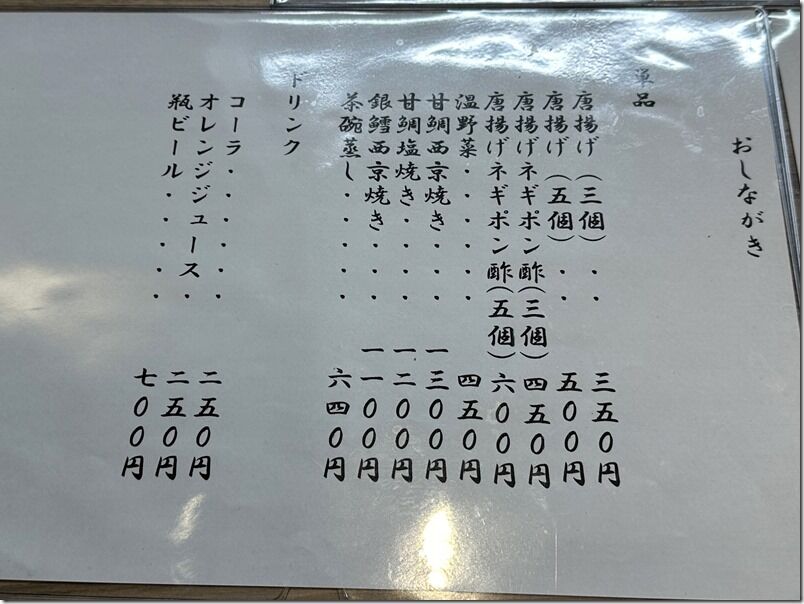 おしながき
単品
唐揚げ（三個）・・三五0円
唐揚げ（五個）・・五00円
唐揚げネギポン酢（三個）四五0円
唐揚げネギポン酢（五個）六00円
温野菜・・・・・四五0円
甘鯛西京焼き・・・一三00円
甘鯛塩焼き・・・・一二00円
銀鱈西京焼き・・・一一00円
茶碗蒸し・・・・・六四0円
ドリンク
コーラ・・・・・・二五0円
オレンジジュース・二五0円
瓶ビール・・・・・七00円